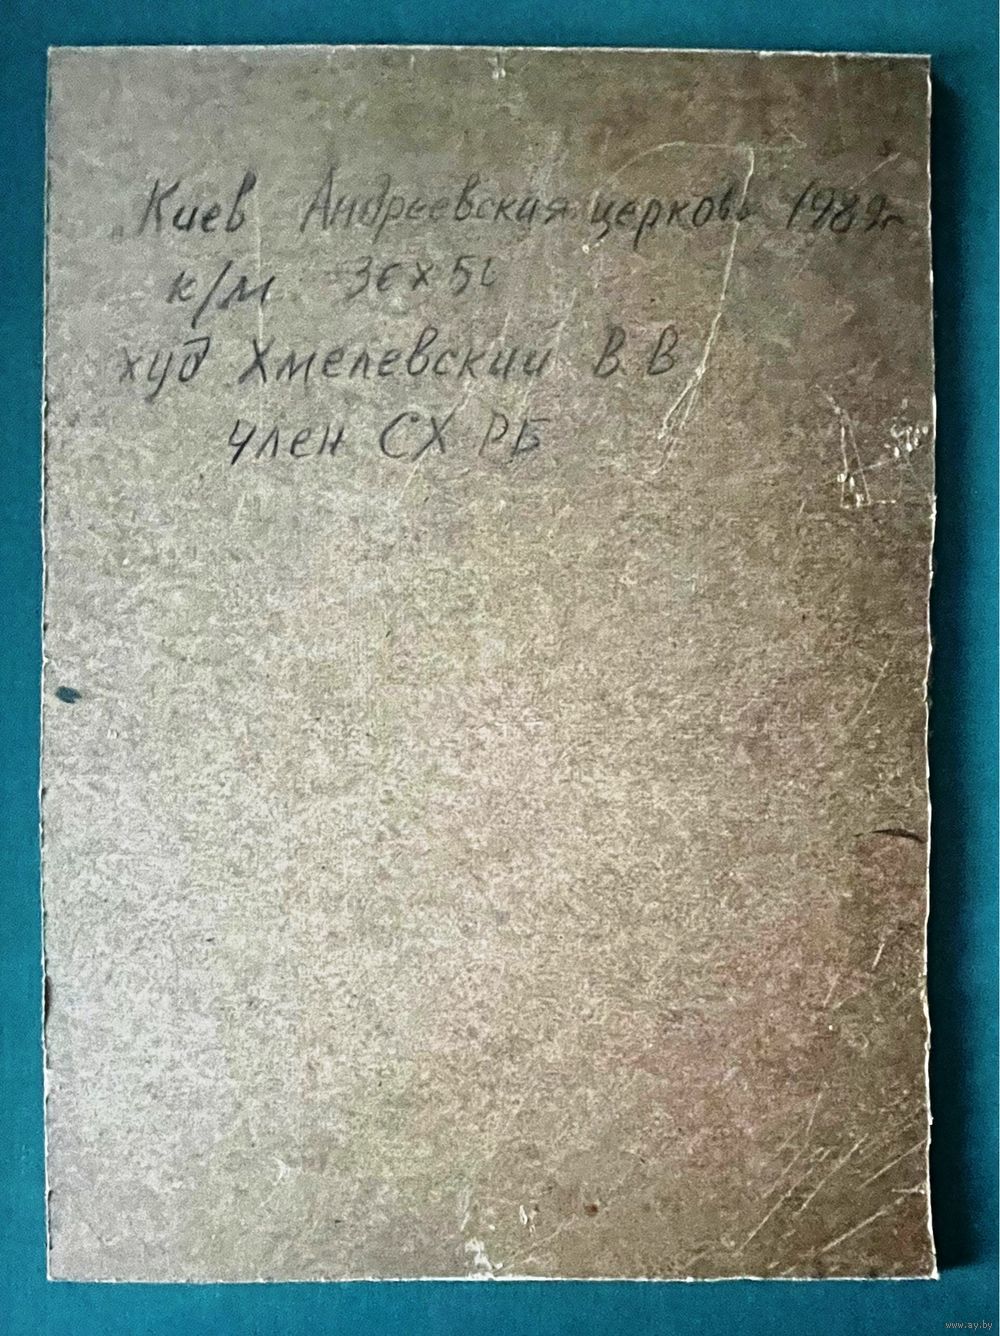 „Киев Андреевская церковь 1989г
к/м 36х51
худ Хмелевский В.В
член СХ РБ
www.ay.by